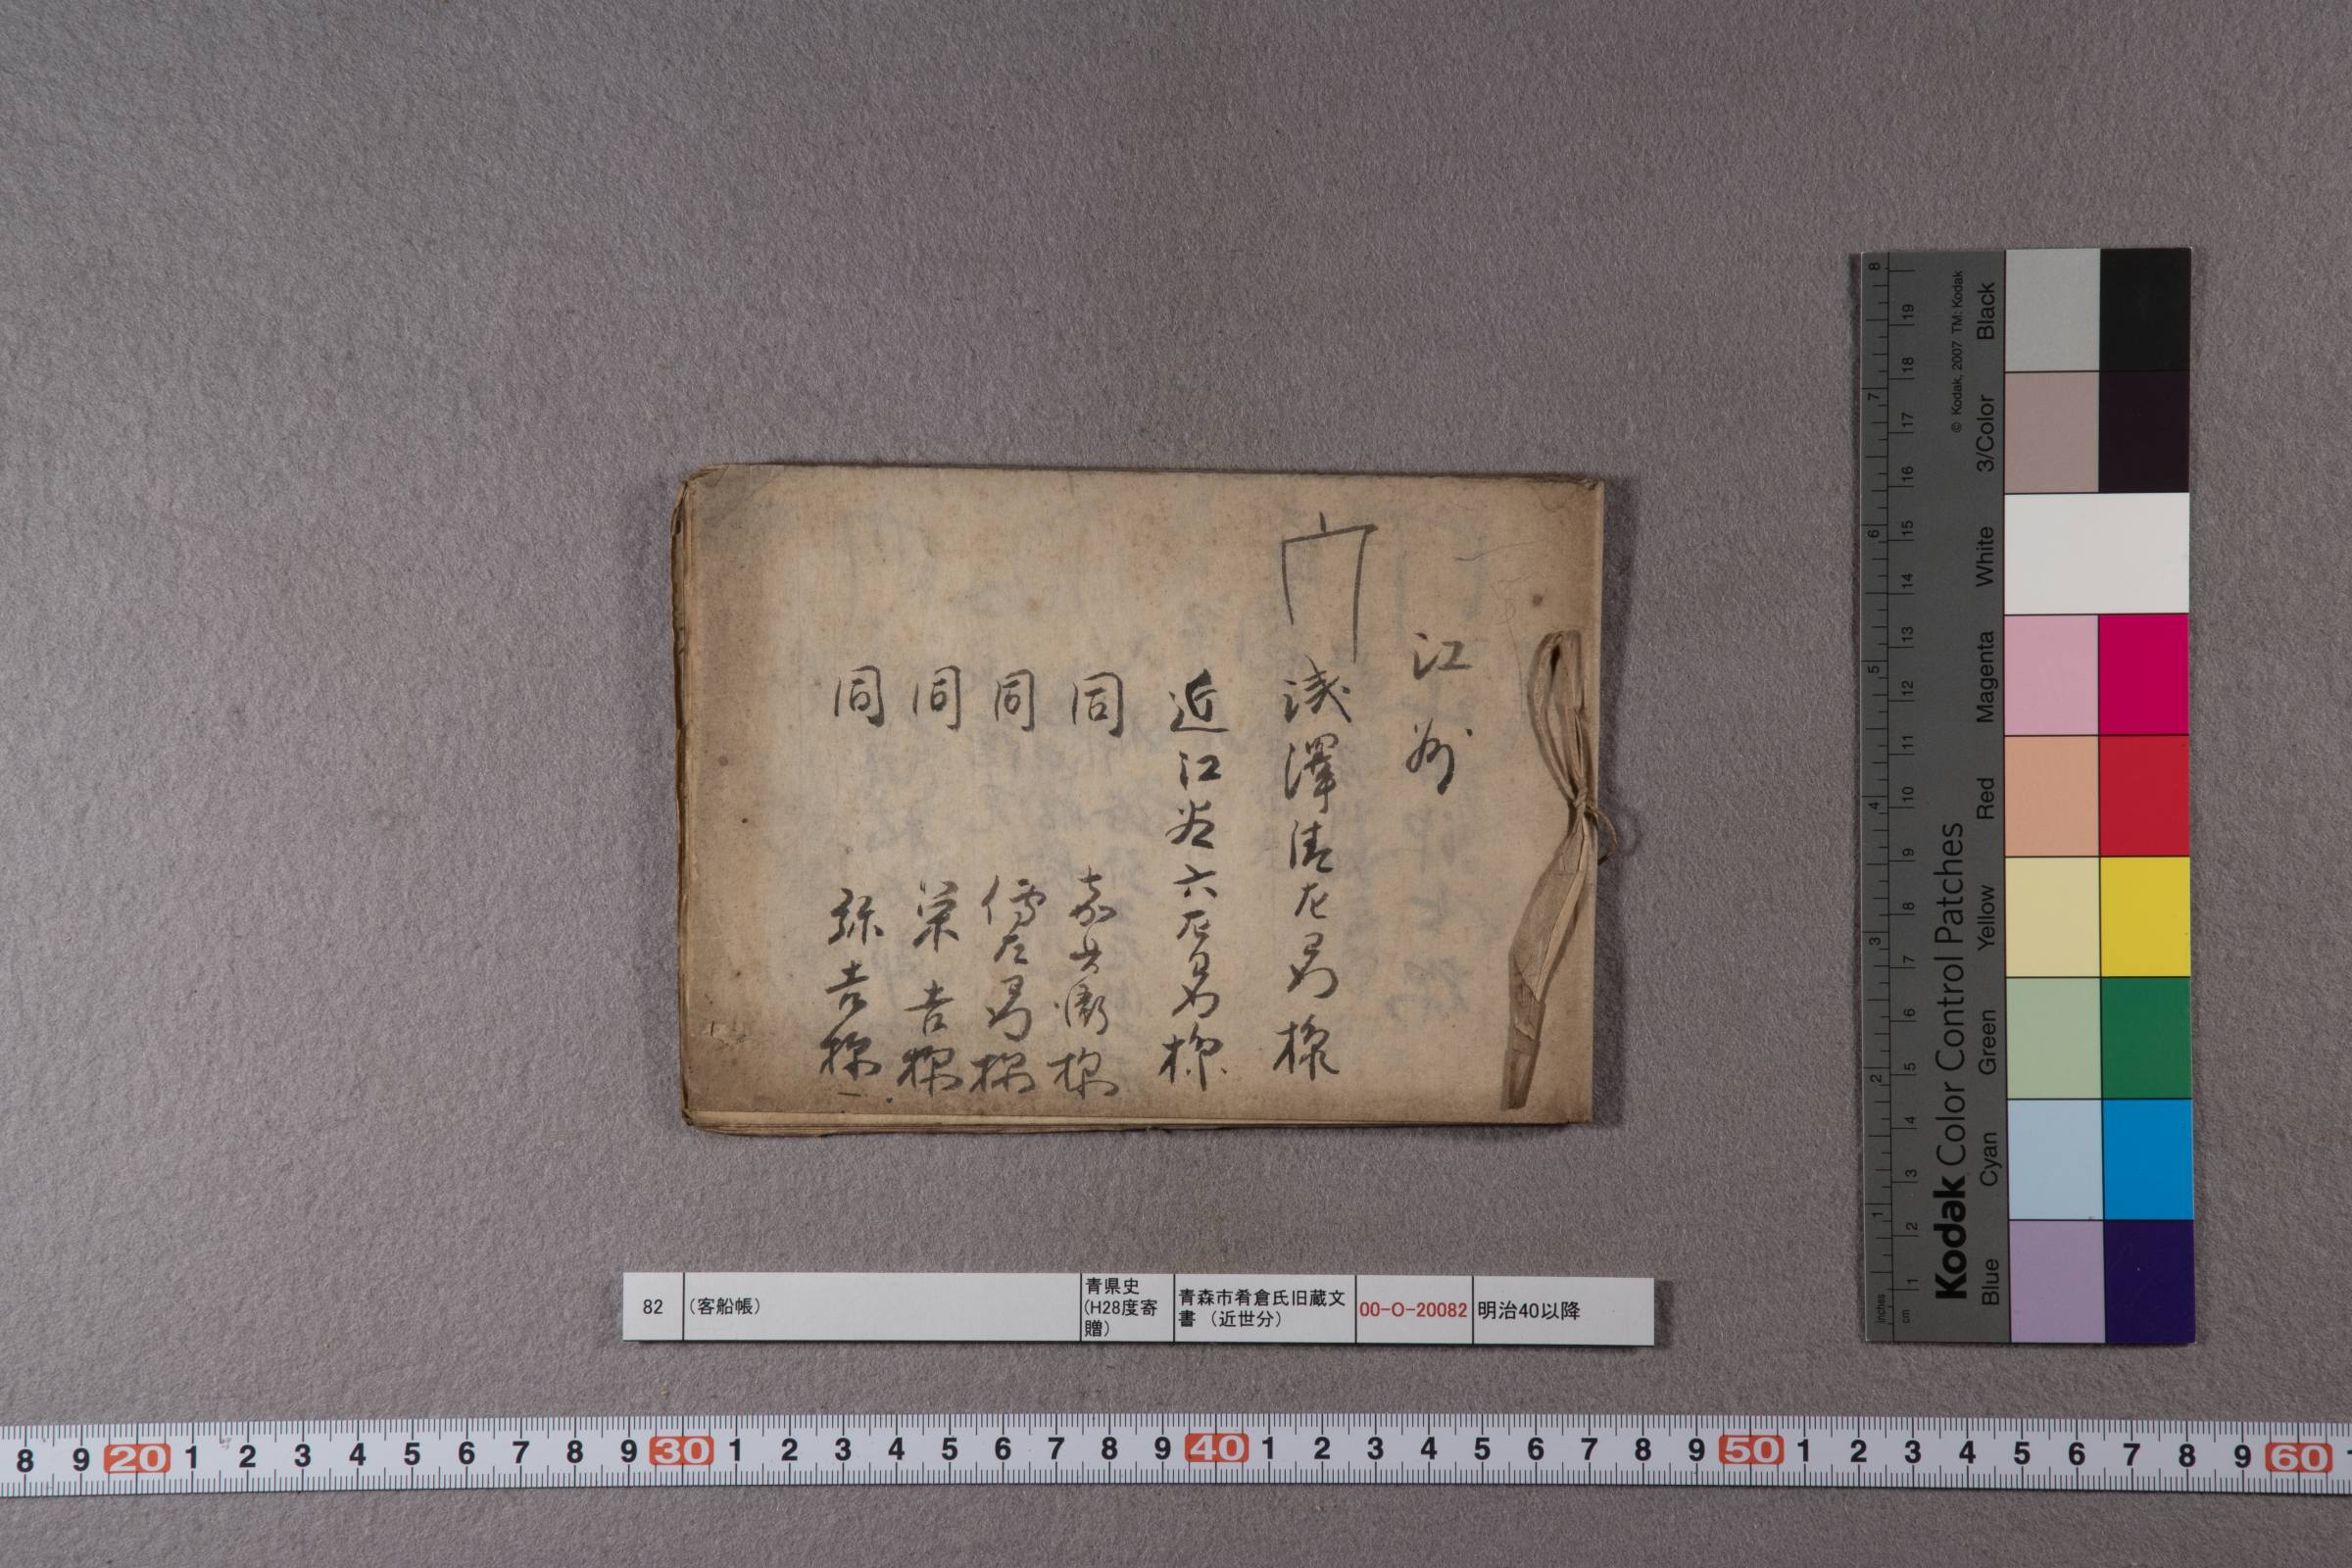 江州
浅澤清左衛門様
近江谷六左衛門様
同 嘉兵衛様
同 傳左衛門様
同 栄吉様
同 弥吉様
82
(客船帳)
青県史
(H28度寄
贈)
青森市肴倉氏旧蔵文
書 (近世分)
00-O-20082
明治40以降
8 9 20 1 2 3 4 5 6 7 8 9 30 1 2 3 4 5 6 7 8 9 40 1 2 3 4 5 6 7 8 9 50 1 2 3 4 5 6 7 8 9 60
Kodak Color Control Patches
© Kodak, 2007 TM: Kodak
Blue Cyan Green Yellow Red Magenta White 3/Color Black
inches 1 2 3 4 5 6 7 8
cm 1 2 3 4 5 6 7 8 9 10 11 12 13 14 15 16 17 18 19